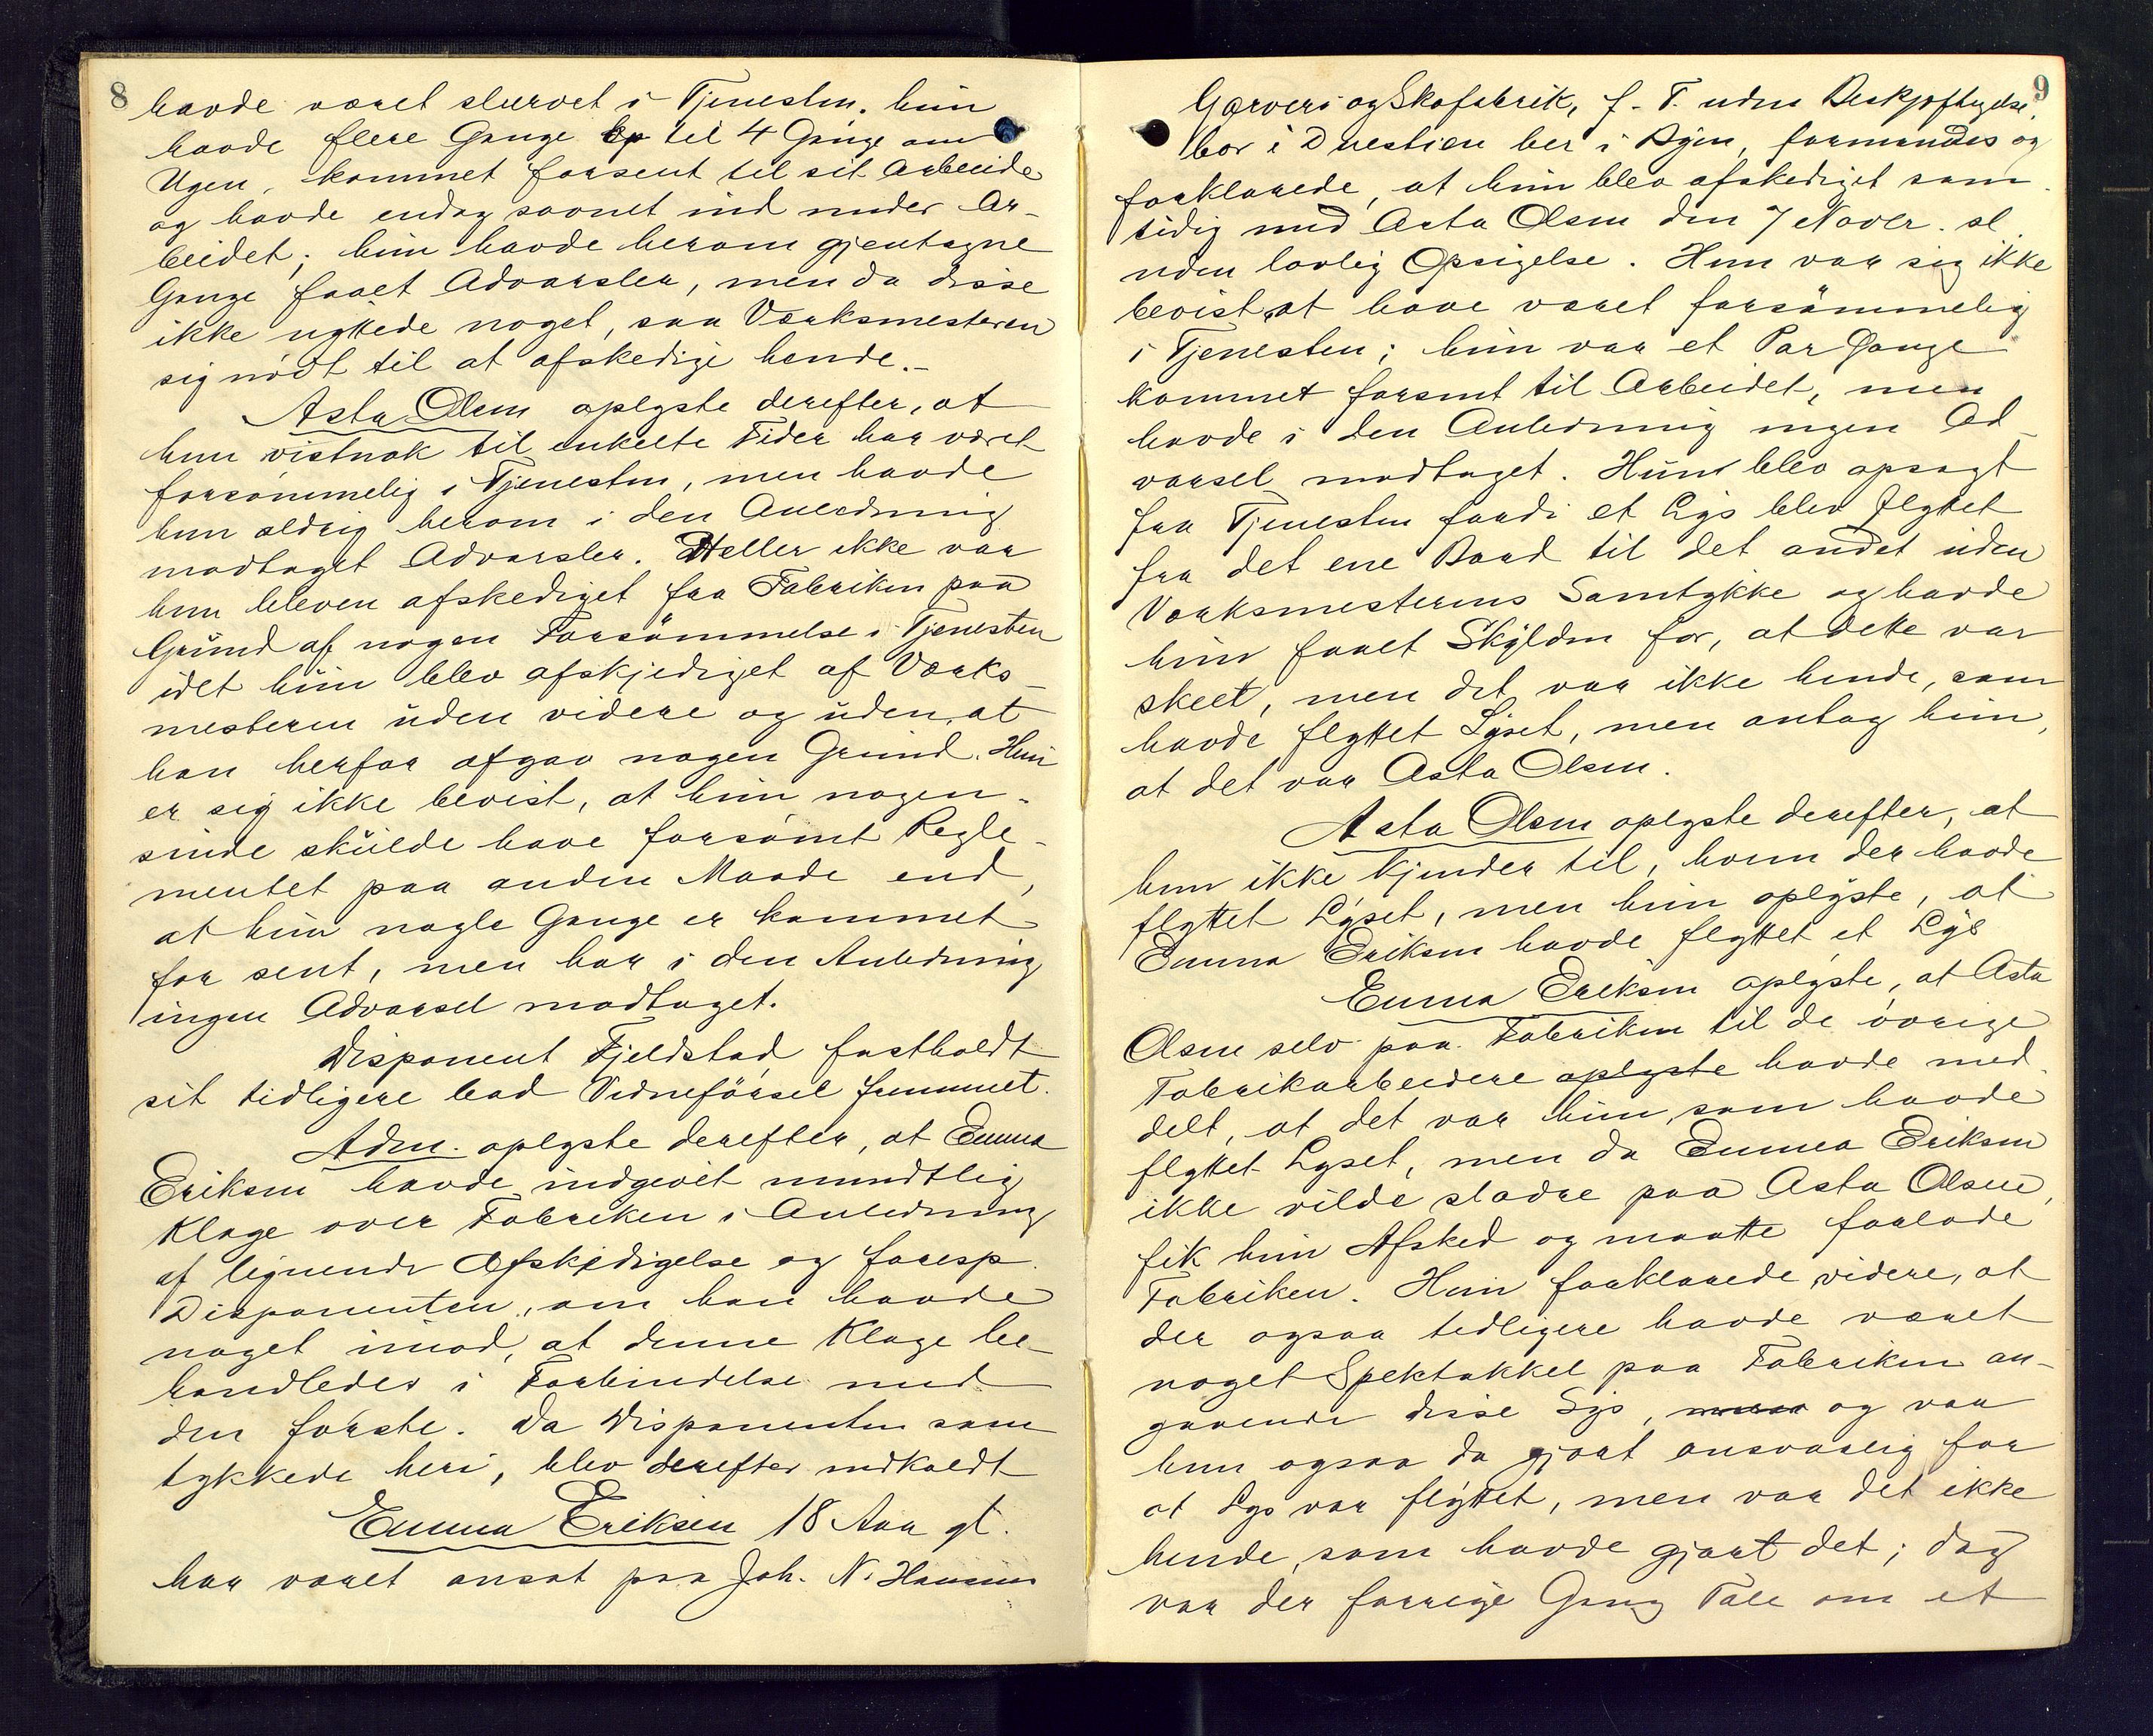 8
havde været slurvet i Tjenesten. hun
havde flere Gange op til 4 Gange om
Ugen, kommet forsent til sit Arbeide
og havde endog sovnet ind under Ar-
beidet; hun havde herom gjentagne
Gange faaet Advarsler, men da disse
ikke nyttede noget, saa Værksmesteren
sig nödt til at afskedige hende.-
Asta Olsen oplyste derefter, at
hun vistnok til enkelte Tider har været
forsömmelig i Tjenesten, men havde
hun aldrig herom i den Anledning
modtaget Advarsler. Heller ikke var
hun bleven afskediget fra Fabriken paa
Grund af nogen Forsömmelse i Tjenesten
idet hun blev afskjediget af Værks-
mesteren uden videre og uden, at
han herfor afgav nogen Grund. Hun
er sig ikke bevist, at hun nogen-
sinde skulde have forsömt Regle-
mentet paa anden Maade end,
at hun nogle Gange er kommet
for sent, men har i den Anledning
ingen Advarsel modtaget.
Disponent Fjeldstad fastholdt
sit tidligere bad Vidneförsel fremmet.
Adm. oplyste derefter, at Emma
Eriksen havde indgivet mundtlig
Klage over Fabriken i Anledning
af lignende Afskedigelse og foresp.
Disponenten, om han havde
noget imod, at denne Klage be-
handledes i Forbindelse med
den förste. Da Disponenten sam
tykkede heri, blev derefter indkaldt
Emma Eriksen 18 Aar gl.
har været ansat paa Joh. N. Hansens
9
Garveri og Skofabrik, f. T. uden Beskjæftigelse,
bor i Duestien her i Byen, formandes og
forklarede, at hun blev afskediget sam
tidig med Asta Olsen den 7 Novbr. sl.
uden lovlig Opsigelse. Hun var sig ikke
bevist, at have været forsömmelig
i Tjenesten; hun var et Par Gange
kommet forsent til Arbeidet, men
havde i den Anledning ingen Ad-
varsel modtaget. Hun blev opsagt
fra Tjenesten fordi et Lys blev flyttet
fra det ene Bord til det andet uden
Værksmesterens Samtykke og havde
hun faaet Skylden for, at dette var
skeet, men det var ikke hende, som
havde flyttet Lyset, men antog hun,
at det var Asta Olsen.
Asta Olsen oplyste derefter, at
hun ikke kjender til, hvem der havde
flyttet Lyset, men hun oplyste, at
Emma Eriksen havde flyttet et Lys
Emma Eriksen oplyste, at Asta
Olsen selv paa Fabriken til de övrige
Fabrikarbeidere oplyste havde med
delt, at det var hun, som havde
flyttet Lyset, men da Emma Eriksen
ikke vilde sladre paa Asta Olsen,
fik hun Afsked og maatte forlade
Fabriken. Hun forklarede videre, at
der ogsaa tidligere havde været
noget Spektakkel paa Fabriken an-
gaaende disse Lys, og var
hun ogsaa da gjort ansvarlig for
at Lys var flyttet, men var det ikke
hende, som havde gjort det; dog
var der forrige Gang Tale om et